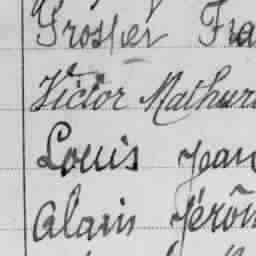 Prosper Fra
Victor Mathur
Louis Jean
Alain Jérôm